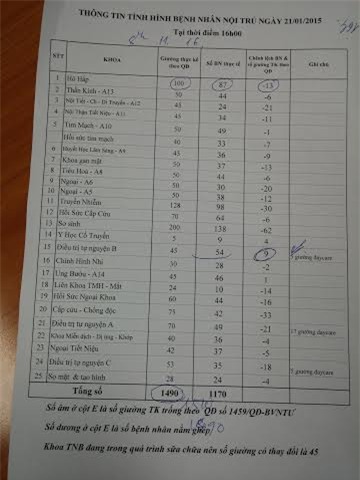 THÔNG TIN TÌNH HÌNH BỆNH NHÂN NỘI TRÚ NGÀY 21/01/2015
Tại thời điểm 16h00
STT KHOA Giường thực kê theo QĐ Số BN thực tế Chênh lệch BN & số giường TK theo QĐ Ghi chú
1 Hô Hấp 100 87 -13
2 Thần Kinh - A13 50 44 -6
3 Nội Tiết - Ch - Di Truyền - A12 45 24 -21
4 Nội Thận Tiết Niệu - A11 45 34 -11
5 Tim Mạch - A10 50 49 -1
Hồi sức tim mạch 40 33 -7
6 Huyết Học Lâm Sàng - A9 45 36 -9
7 Khoa gan mật 50 37 -13
8 Tiêu Hoá - A8 50 44 -6
9 Ngoại - A6 50 30 -20
10 Ngoại - A5 50 38 -12
11 Truyền Nhiễm 128 98 -30
12 Hồi Sức Cấp Cứu 70 64 -6
13 Sơ sinh 200 138 -62
14 Y Học Cổ Truyền 5 9 4
15 Điều trị tự nguyện B 45 54 9 5 giường daycare
16 Chỉnh Hình Nhi 30 28 -2
17 Ung Bướu - A14 45 46 1
18 Liên Khoa TMH - Mắt 24 10 -14
19 Hồi Sức Ngoại Khoa 60 44 -16
20 Cấp cứu - Chống độc 75 42 -33
21 Điều trị tự nguyện A 70 49 -21 17 giường daycare
22 Khoa Miễn dịch - Dị ứng - Khớp 40 36 -4
23 Ngoại Tiết Niệu 42 37 -5
24 Điều trị tự nguyện C 53 35 -18 7 giường daycare
25 Sọ mặt & tạo hình 28 24 -4
Tổng số 1490 1170
Số âm ở cột E là số giường TK trống theo QĐ số 1459/QĐ-BVNTƯ
Số dương ở cột E là số bệnh nhân nằm ghép
Khoa TNB đang trong quá trình sửa chữa nên số giường có thay đổi là 45